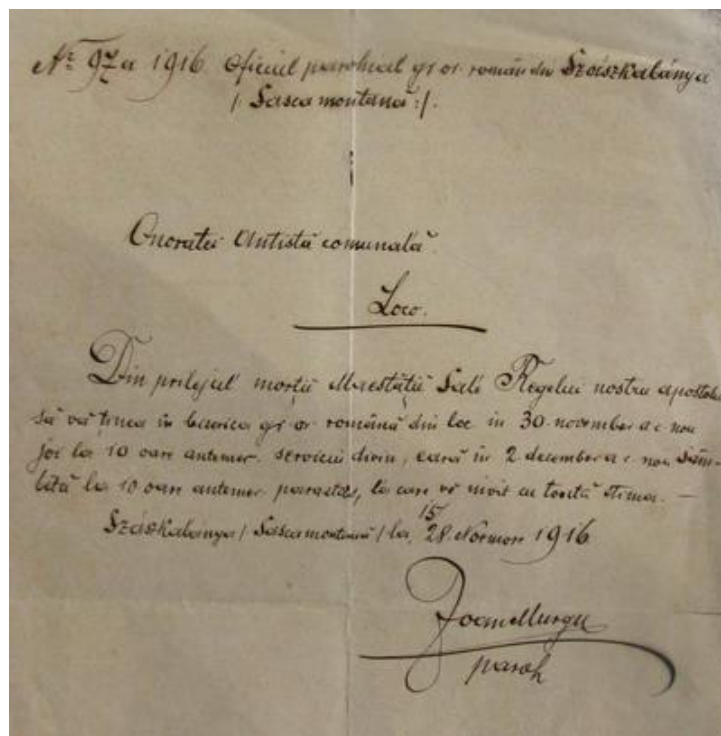 Nr. 97 a 1916. Oficiul parohial gr. or. român din Szászkabánya
/: Sasca montană :/.
Onoratei Antistă comunală.
Loco.
Din prilejul morții Maestății Sale Regelui nostru apostolic
să va ținea în biserica gr. or. română din loc in 30. november a c. nou
joi la 10 oare antemer. serviciu divin, eară în 2. december a c. nou Sâm-
bătă la 10 oare antemer. parastas, la care vă invit cu toată stima. —
Szászkabánya / Sasca montană / la 15/28. Novemvre 1916
Ioan Murgu
paroh